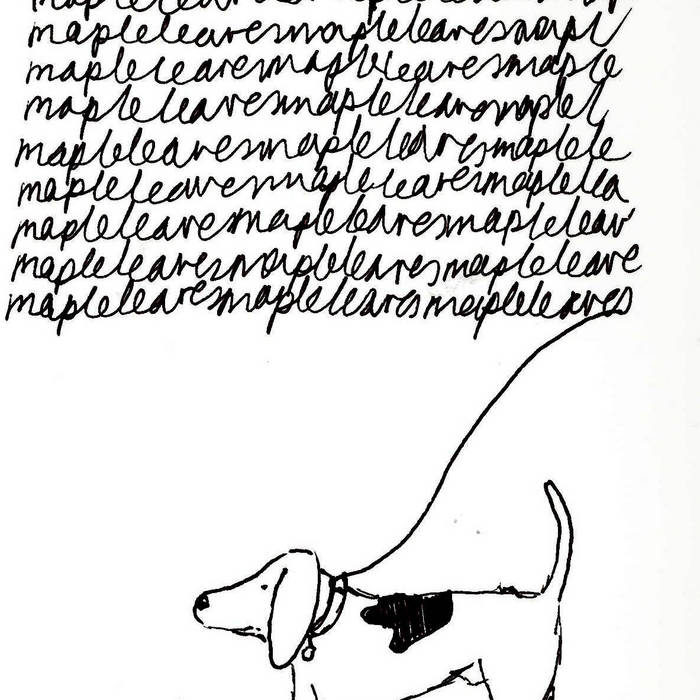 mapleleavesmapleleavesmapl
mapleleavesmapleleavesmapl
mapleleavesmapleleavesmaple
mapleleavesmapleleavesmaplel
mapleleavesmapleleavesmaplele
mapleleavesmapleleavesmaplelea
mapleleavesmapleleavesmapleleav
mapleleavesmapleleavesmapleleave
mapleleavesmapleleavesmapleleaves